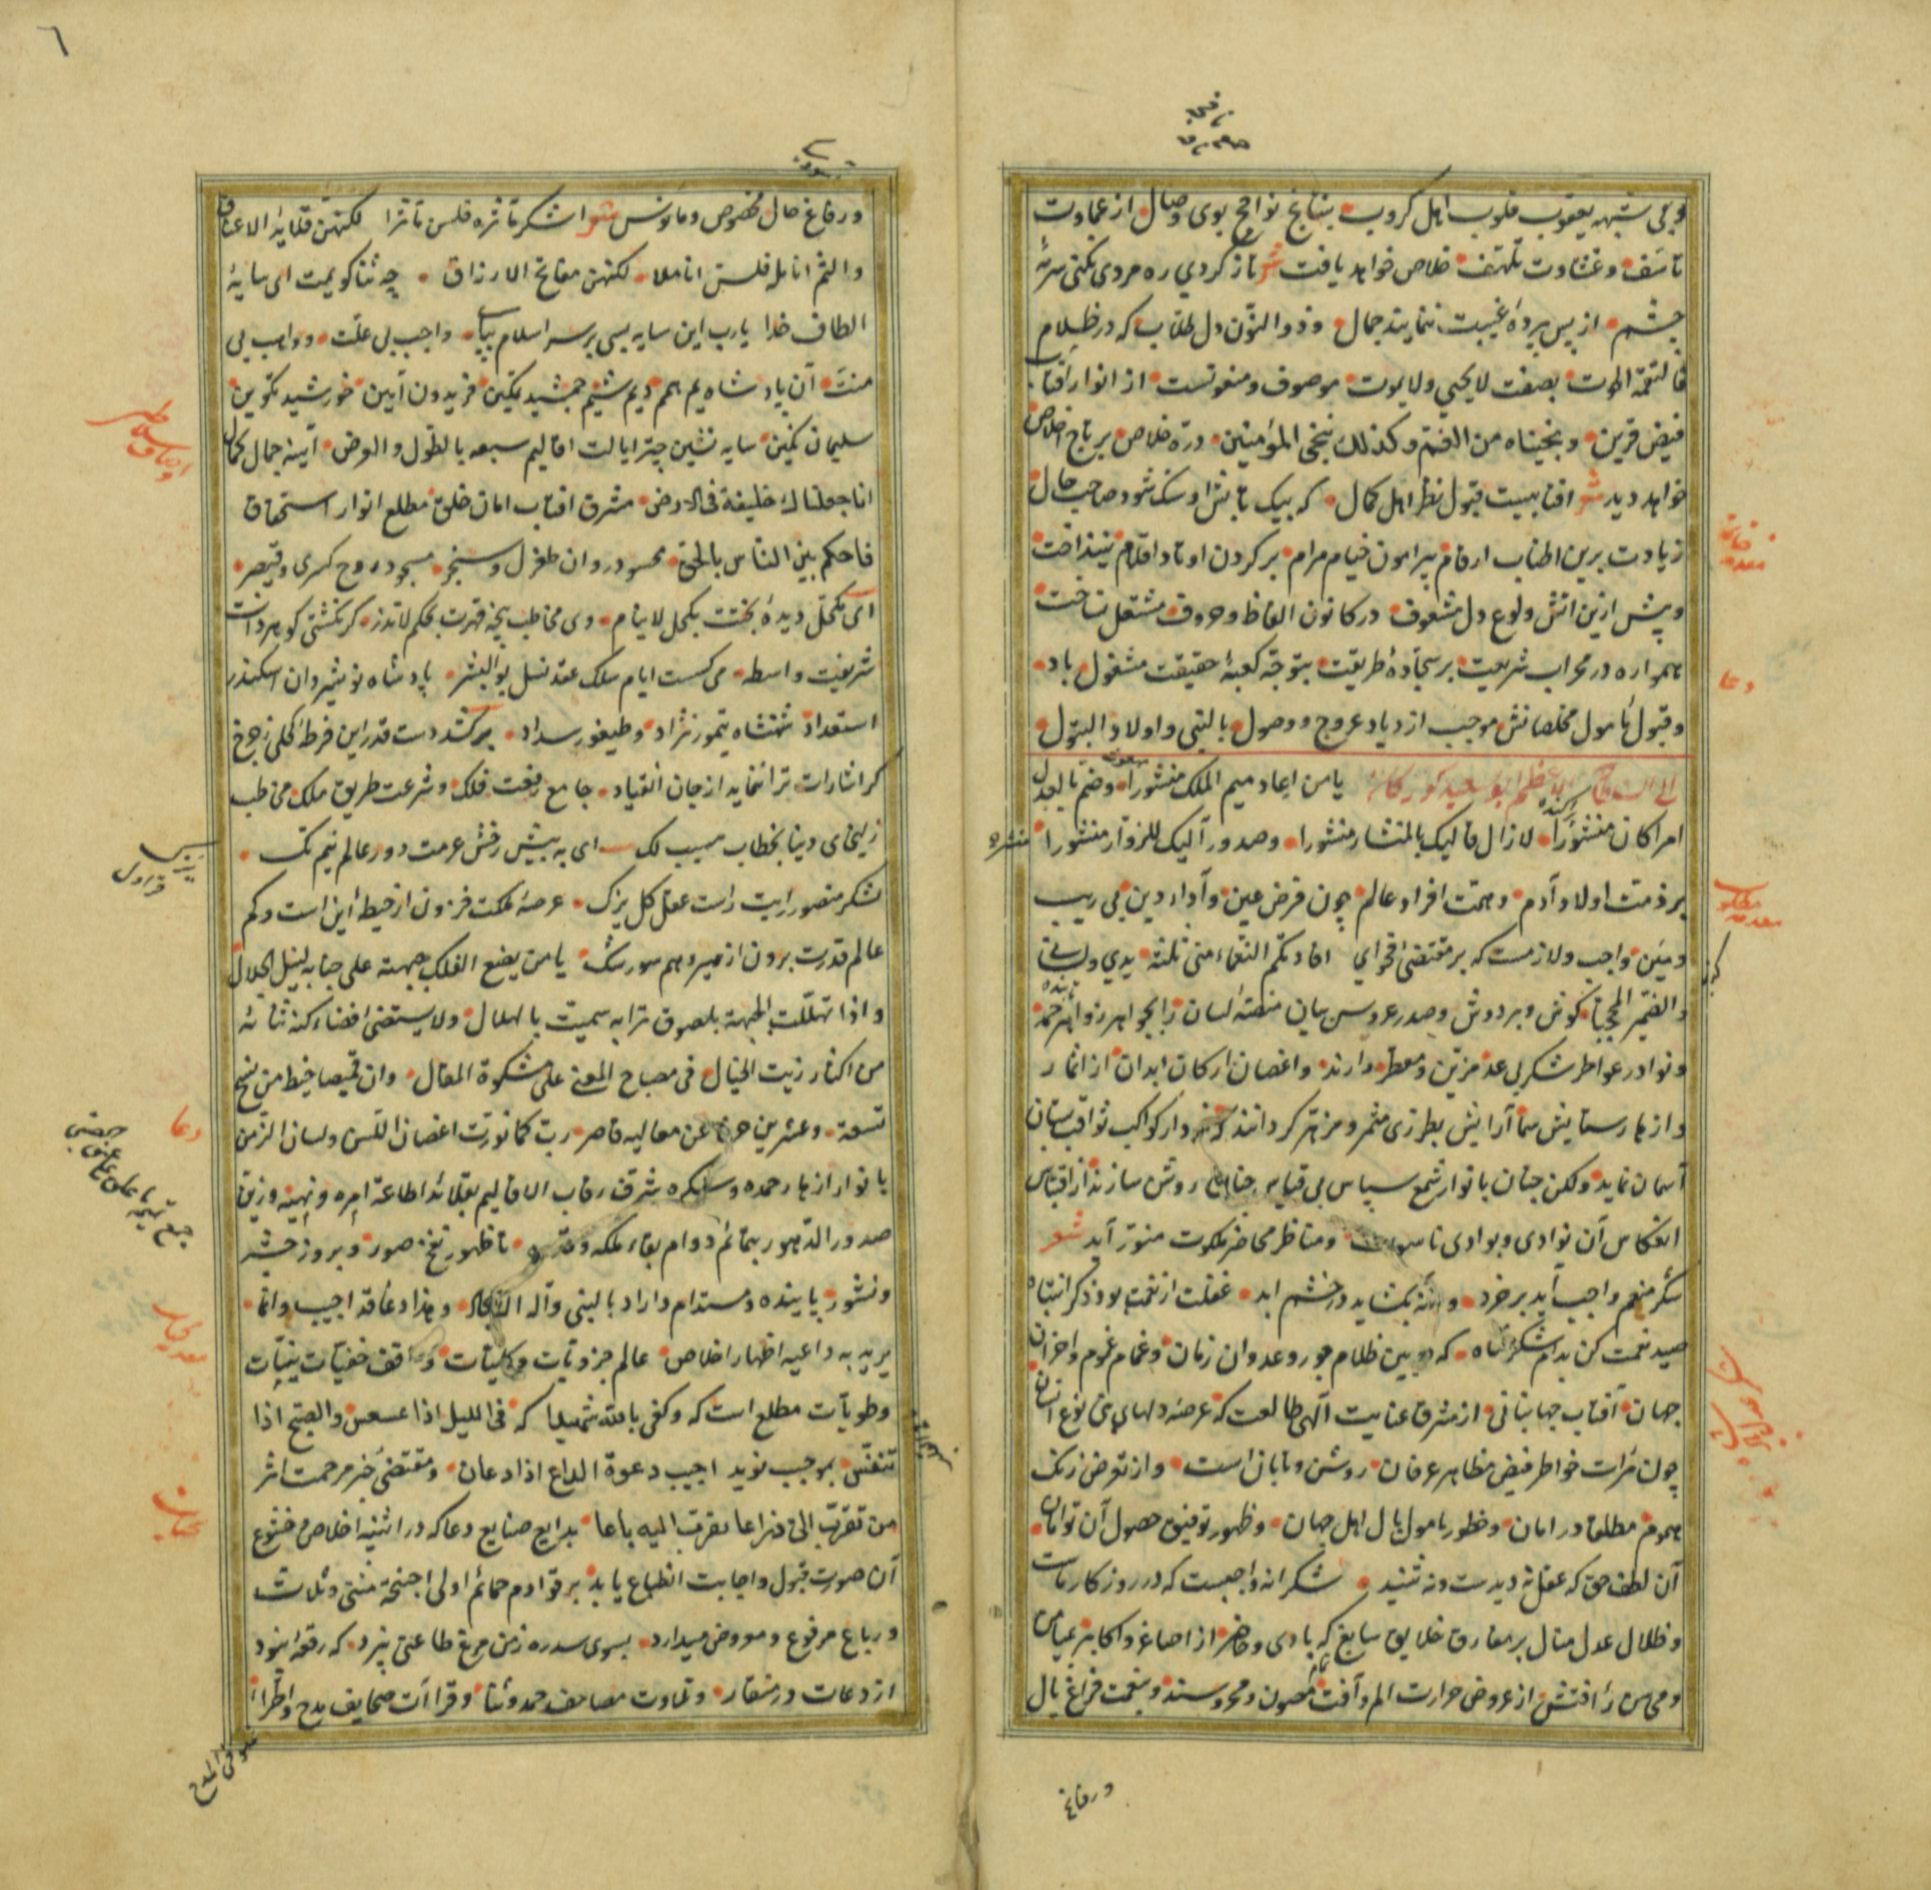 و بی شبهه یعقوب قلوب اهل کروب بنتایج نوافح بوی وصال از عماوت
تاسف و غشاوت تلهف خلاص خواهد یافت شعر باز کردی ره مردی بکنی سرمهٔ
چشم از پس پردهٔ غیبت بنمایند جمال و ذو النون دل طلاب که در ظلام
فالتقمه الحوت بصفت لا یحیی ولا یموت موصوف و منعوتست از انوار آفتاب
فیض قرین و نجیناه من الغم و کذلک ننجی المؤمنین دره خلاص بر تاج اخلاص
خواهد دید شعر آفتابیست قبول نظر اهل کمال که بیک تابش او سنک شود صاحب حال
زیادت برین اطناب ارقام پیرامون خیام مرام بر کردن اوتاد اقلام نینداخت
و پیش ازین آتش ولوع دل مشعوف در کانون الفاظ و حروف مشتعل نساخت
همواره در محراب شریعت بر سجادهٔ طریقت بتوجه کعبهٔ حقیقت مشغول باد
و قبول مأمول مخلصانش موجب ازدیاد عروج و وصول بالنبی و اولاد البتول
یا من اعاد میم الملک منشورا وضم بالعدل
امرا کان منشورا لا زال فالیک بالمنشار منشورا وصدور آلیک للزوار منشورا
بر ذمت اولاد آدم و همت افراد عالم چون فرض عین و آداء دین بی ریب
و مین واجب و لازمست که بر مقتضی فحوای افادتکم النعماء منی ثلثة یدی و لسانی
والضمیر المحجبا کوش و بر دوش و صدر عروس بیان منصهٔ لسان را بجواهر زواهر حمد
و نوادر عواطر شکر بی عد مزین و معطر دارند و اغصان ارکان ابدان از اثمار
و ازهار ستایش سما آرایش بطرزی مثمر و مزهر کردانند که نمودار کواکب ثواقب بستان
آسمان نماید و کلخن جنان بانوار شمع سپاس بی قیاس روشن سازند از اقتباس
انعکاس آن نوادی و بوادی ناسوت و مناظر محاضر ملکوت منور آید شعر
شکر منعم واجب آید بر خرد ورنه بکشاید در خشم ابد غفلت از نعمت بود ذکر انتباه
صید نعمت کن بدام شکر شاه که بین ظلام جور و عدوان زمان و غمام غموم و احزان
جهان آفتاب جهانبانی از مشرق عنایت آلهی طالعت که عرصهٔ دلهای بنی نوع انسان
چون مرات خواطر فیض مظاهر عرفان روشن و تابان است و از تعرض زنک
هموم مطلقا در امان و خطور مامول ببال اهل جهان و ظهور توفیق حصول آن توامان
آن لطف حق که عقل نه دیدست و نه شنید شکرانه واجبست که در روزکار ماست
و ظلال عدل متال بر مفارق خلایق سابغ که بادی و حاضر از اصاغر و اکابر بمیامن
و محاسن رأفتش از عروض حرارت الم و آفت مصون و محروسند و بنعمت فراغ بال
و رفاغ
و رفاغ حال مخصوص و مانوس شعر اشکر مآثره فلسن مآثرا لکنهن قلاید الاعناق
والثم انامله فلسن اناملا لکنهن مفاتح الارزاق چه ثنا کویمت ای سایهٔ
الطاف خدا یا رب این سایه بسی بر سر اسلام بپای واجب بی علت و واهب بی
منت آن پادشاه یم همم دیم شیم جمشید تمکین فریدون آیین خورشید تکوین
سلیمان نکین سایه نشین چتر ایالت اقالیم سبعه بالطول والعرض آینهٔ جمال کمال
انا جعلناک خلیفة فی الارض مشرق آفتاب امان خلق مطلع انوار استحقاق
فاحکم بین الناس بالحق محسود روان طغرل و سنجر مسجود روح کسری و قیصر
ای مکحل دیدهٔ بختت بکحل لا ینام وی مخاطب پنجهٔ قهرت بحکم لا تذر کر نکشتی کوهر ذات
شریفت واسطه می کسست ایام سلک عقد نسل بو البشر پادشاه نوشیروان اسکندر
استعداد شهنشاه تیمور نژاد و طیغور سداد برکند دست قدر این فرطهٔ کحلی ز چرخ
کر اشارات ترا ننماید از جان انقیاد جامع رفعت فلک و شرعت طریق ملک مخاطب
زلیخای دنیا بخطاب هیت لک ای به پیش رخش عزمت دور عالم نیم تک
لشکر منصور رایت راست عقل کل یزک عرصهٔ ملکت فزون از حیطهٔ این است و کم
عالم قدرت برون از هیر و هم سورشک یا من یضع الفلک جبهته علی جنابه لنیل الجلال
و اذا تهللت الجبهة بلصوق ترابه سمیت بالهلال ولا یستقضی افضاء کنه ثنائه
من اکثار زیت الخیال فی مصباح المعنی علی مشکوة المقال وان قمیصا خیط من نسج
تسعة وعشرین حرفا عن معالیه قاصر رب کما نورت اغصان اللسن ولسان الزمن
بانوار ازهار حمده وشکره شرف رقاب الاقالیم بقلائد اطاعة امره ونهیه وزین
صدور الدهور بتمائم دوام بقاء ملکه تا ظهور نفخ صور و بروز حشر
و نشور پاینده و مستدام داراد بالنبی وآله الامجاد و هذا دعاء قد اجیب وانما
یرید به داعیه اظهار اخلاص عالم جزویات و کلیات و واقف خفیات نیات
و طویات مطلع است که و کفی بالله شهیدا که فی اللیل اذا عسعس والصبح اذا
تنفس بموجب نوید اجیب دعوة الداع اذا دعان و مقتضی خبر مرحمت اثر
من تقرب الی ذراعا تقربت الیه باعا بدایع صنایع دعا که در اثنیهٔ اخلاص و خشوع
آن صورت قبول و اجابت انطباع یابد بر قوادم حمائم اولی اجنحة مثنی و ثلاث
و رباع مرفوع و معروض میدارد بسوی سدره ز من مرغ طاعتی نپرد که رقعه نبود
از دعات در منقار و تلاوت مصاحف حمد و ثنا و قراآت صحایف مدح و اطرا
دعا
دعا